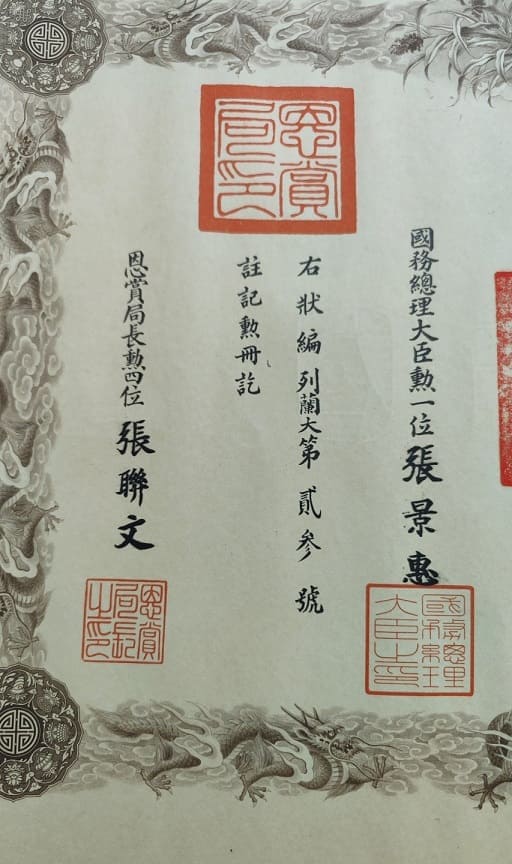 國務總理大臣勲一位 張景惠
國務總理大臣之印
恩賞局印
右狀編列蘭大第貳参號
註記勲冊訖
恩賞局長勲四位 張聯文
恩賞局長之印